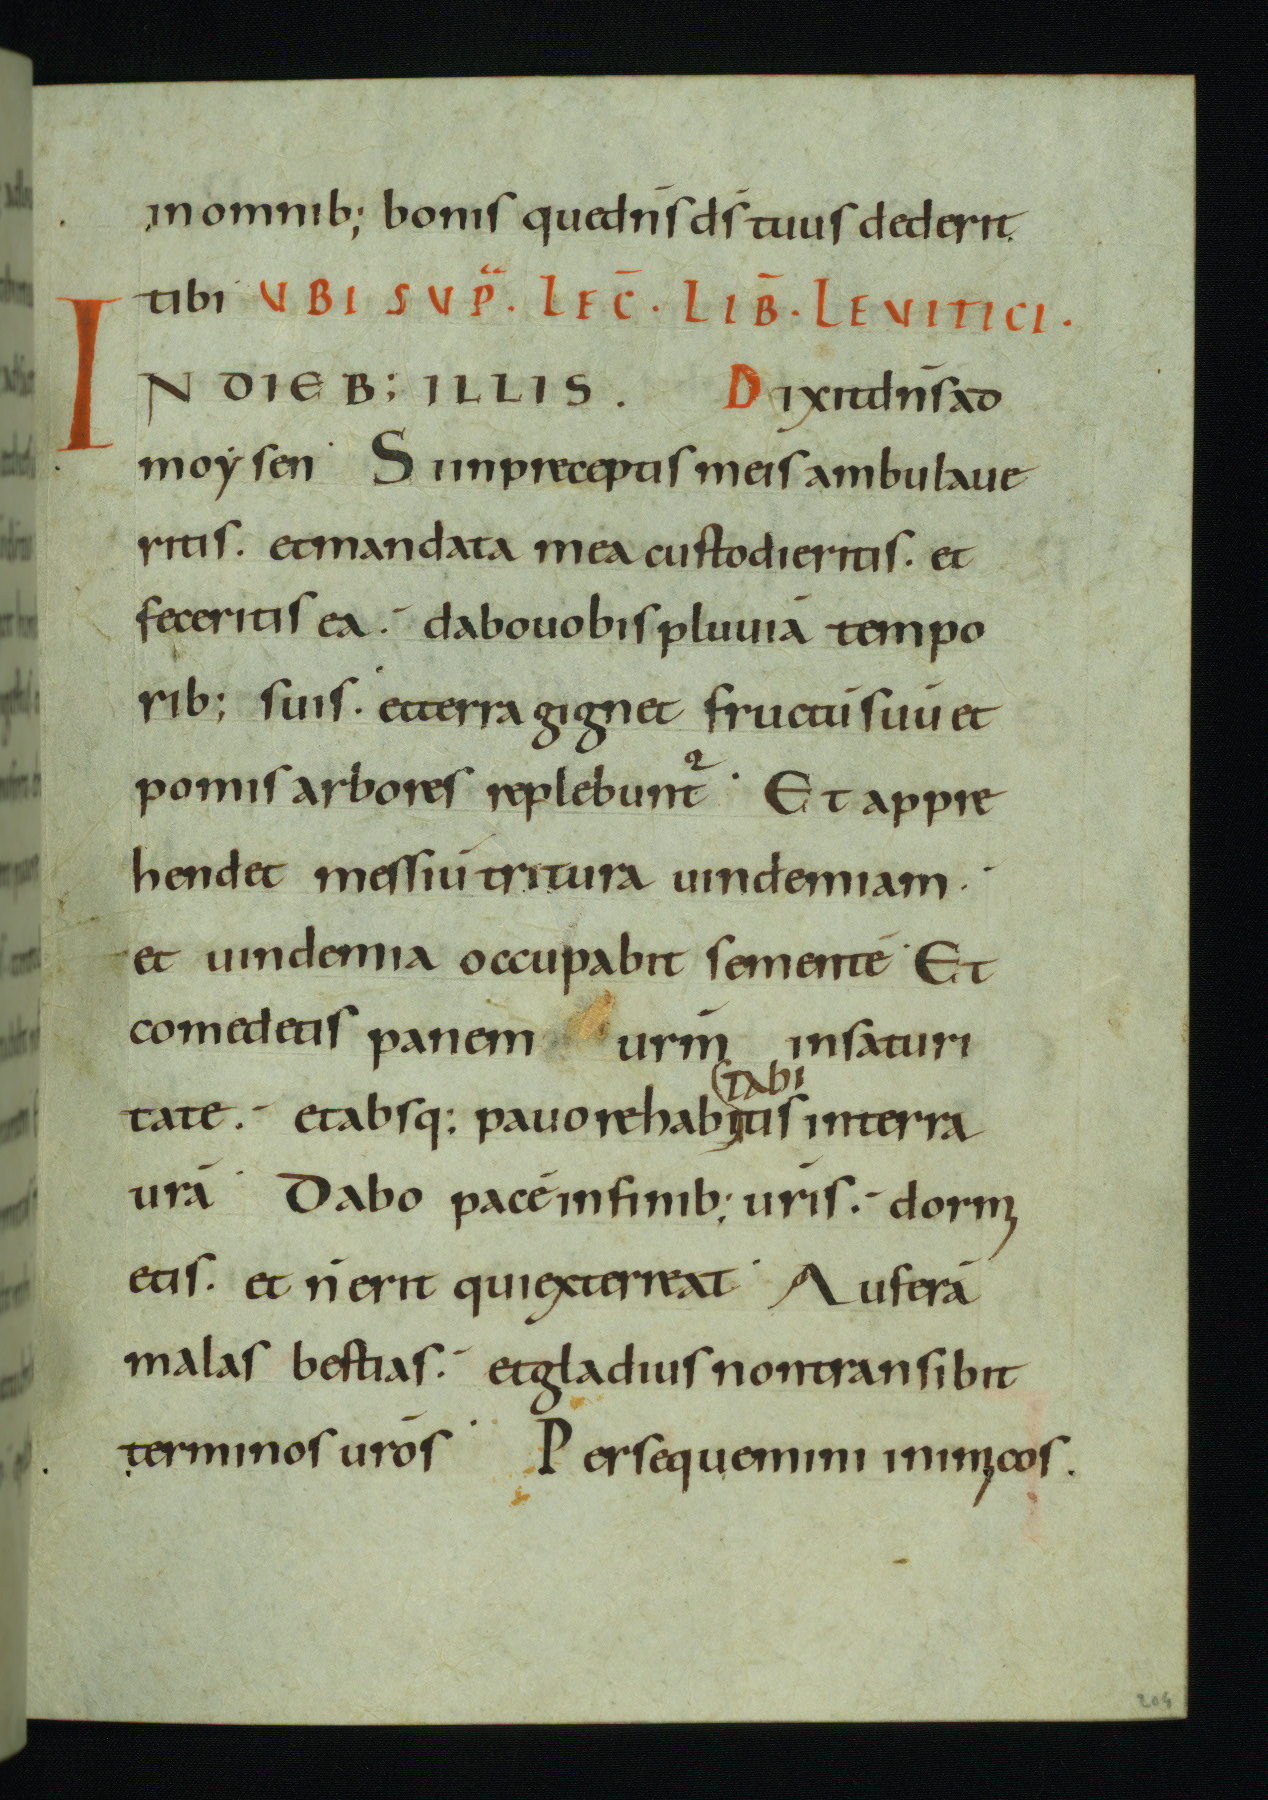 in omnib; bonis que dn̄s ds̄ tuus dederit
tibi UBI SUP̄. LEC̄. LIB̄. LEVITICI.
IN DIEB; ILLIS. Dixit dn̄s ad
moẏsen Si in preceptis meis ambulaue
ritis. et mandata mea custodieritis. et
feceritis ea. dabo uobis pluuiā tempo
rib; suis. et terra gignet fructū suū et
pomis arbores replebunt² Et appre
hendet messiū tritura uindemiam.
et uindemia occupabit sementē Et
comedetis panem urm̄ in saturi
tabi
tate. et absq; pauore habitis in terra
urā Dabo pacē in finib; urīs. dorm
etis. et n̄ erit qui exterreat Auferā
malas bestias. et gladius non transibit
terminos urōs Persequemini inimicos.
204